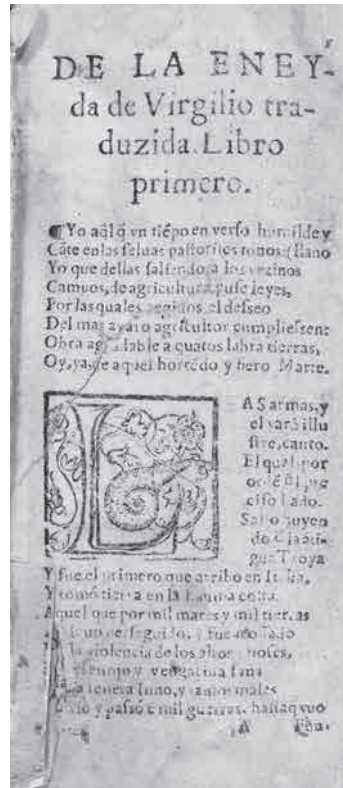 DE LA ENEY-
da de Virgilio tra-
duzida. Libro
primero.
¶Yo aq̃l q̃ vn tiẽpo en verso humilde y
Cãte en las seluas pastoriles tonos: (llano
Yo que dellas saliendo a los vezinos
Campos, de agricultura puse leyes,
Por las quales regidos el desseo
Del mas auaro agricultor cumpliessen:
Obra agradable a quãtos labrã tierras,
Oy, ya de aquel horrẽdo y fiero Marte.
LAS armas, y
el varõ illu
stre, canto.
El qual por
Salio huyen
do
gua Troya
Y fue el primero que arribo en Italia,
Y tomó tierra en la
Aquel que por mil mares y mil tierras
fue
la violencia de los altos Dioses,
enojo y vengatiua saña
Iuno, y
y passó mil guerras, hasta q̃ vuo
A